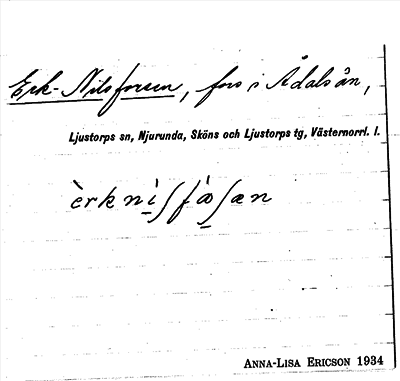 Erk-Nilsforsen, fors i Ådalsån,
Ljustorps sn, Njurunda, Sköns och Ljustorps tg, Västernorrl. l.
èrk nì̲ʃfà̲ʃæn
ANNA-LISA ERICSON 1934